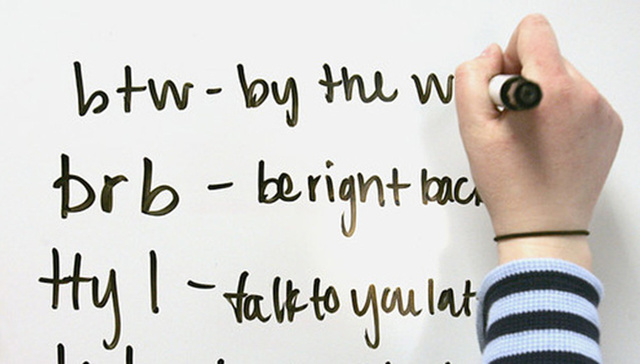 btw - by the w
brb - be right bac
ttyl - talk to you lat